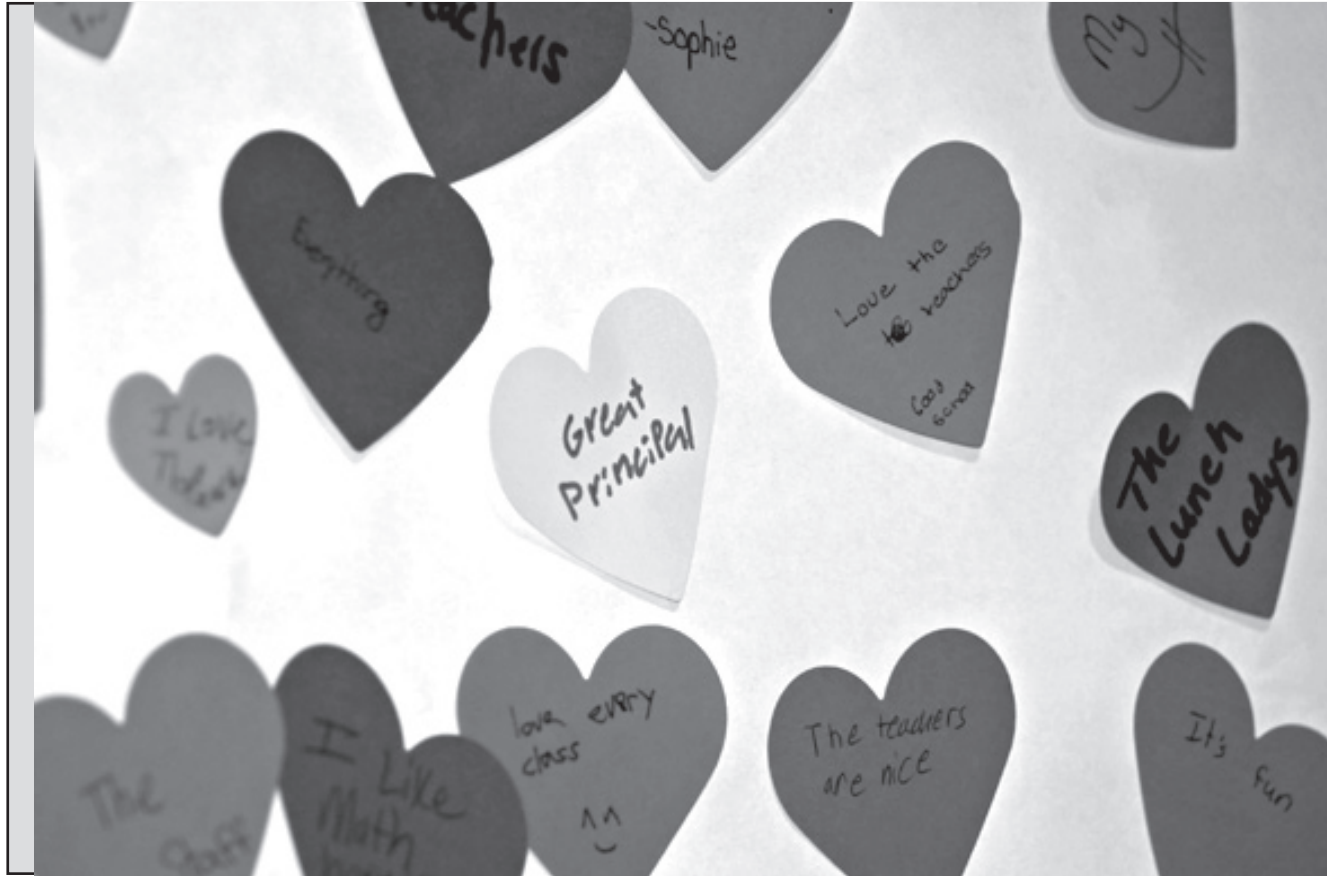 -Sophie
My
Everything
Love the
teachers
Good
School
I Love
Great
Principal
The
Lunch
Ladys
The
Staff
I Like
Math
love every
class
The teachers
are nice
It's fun